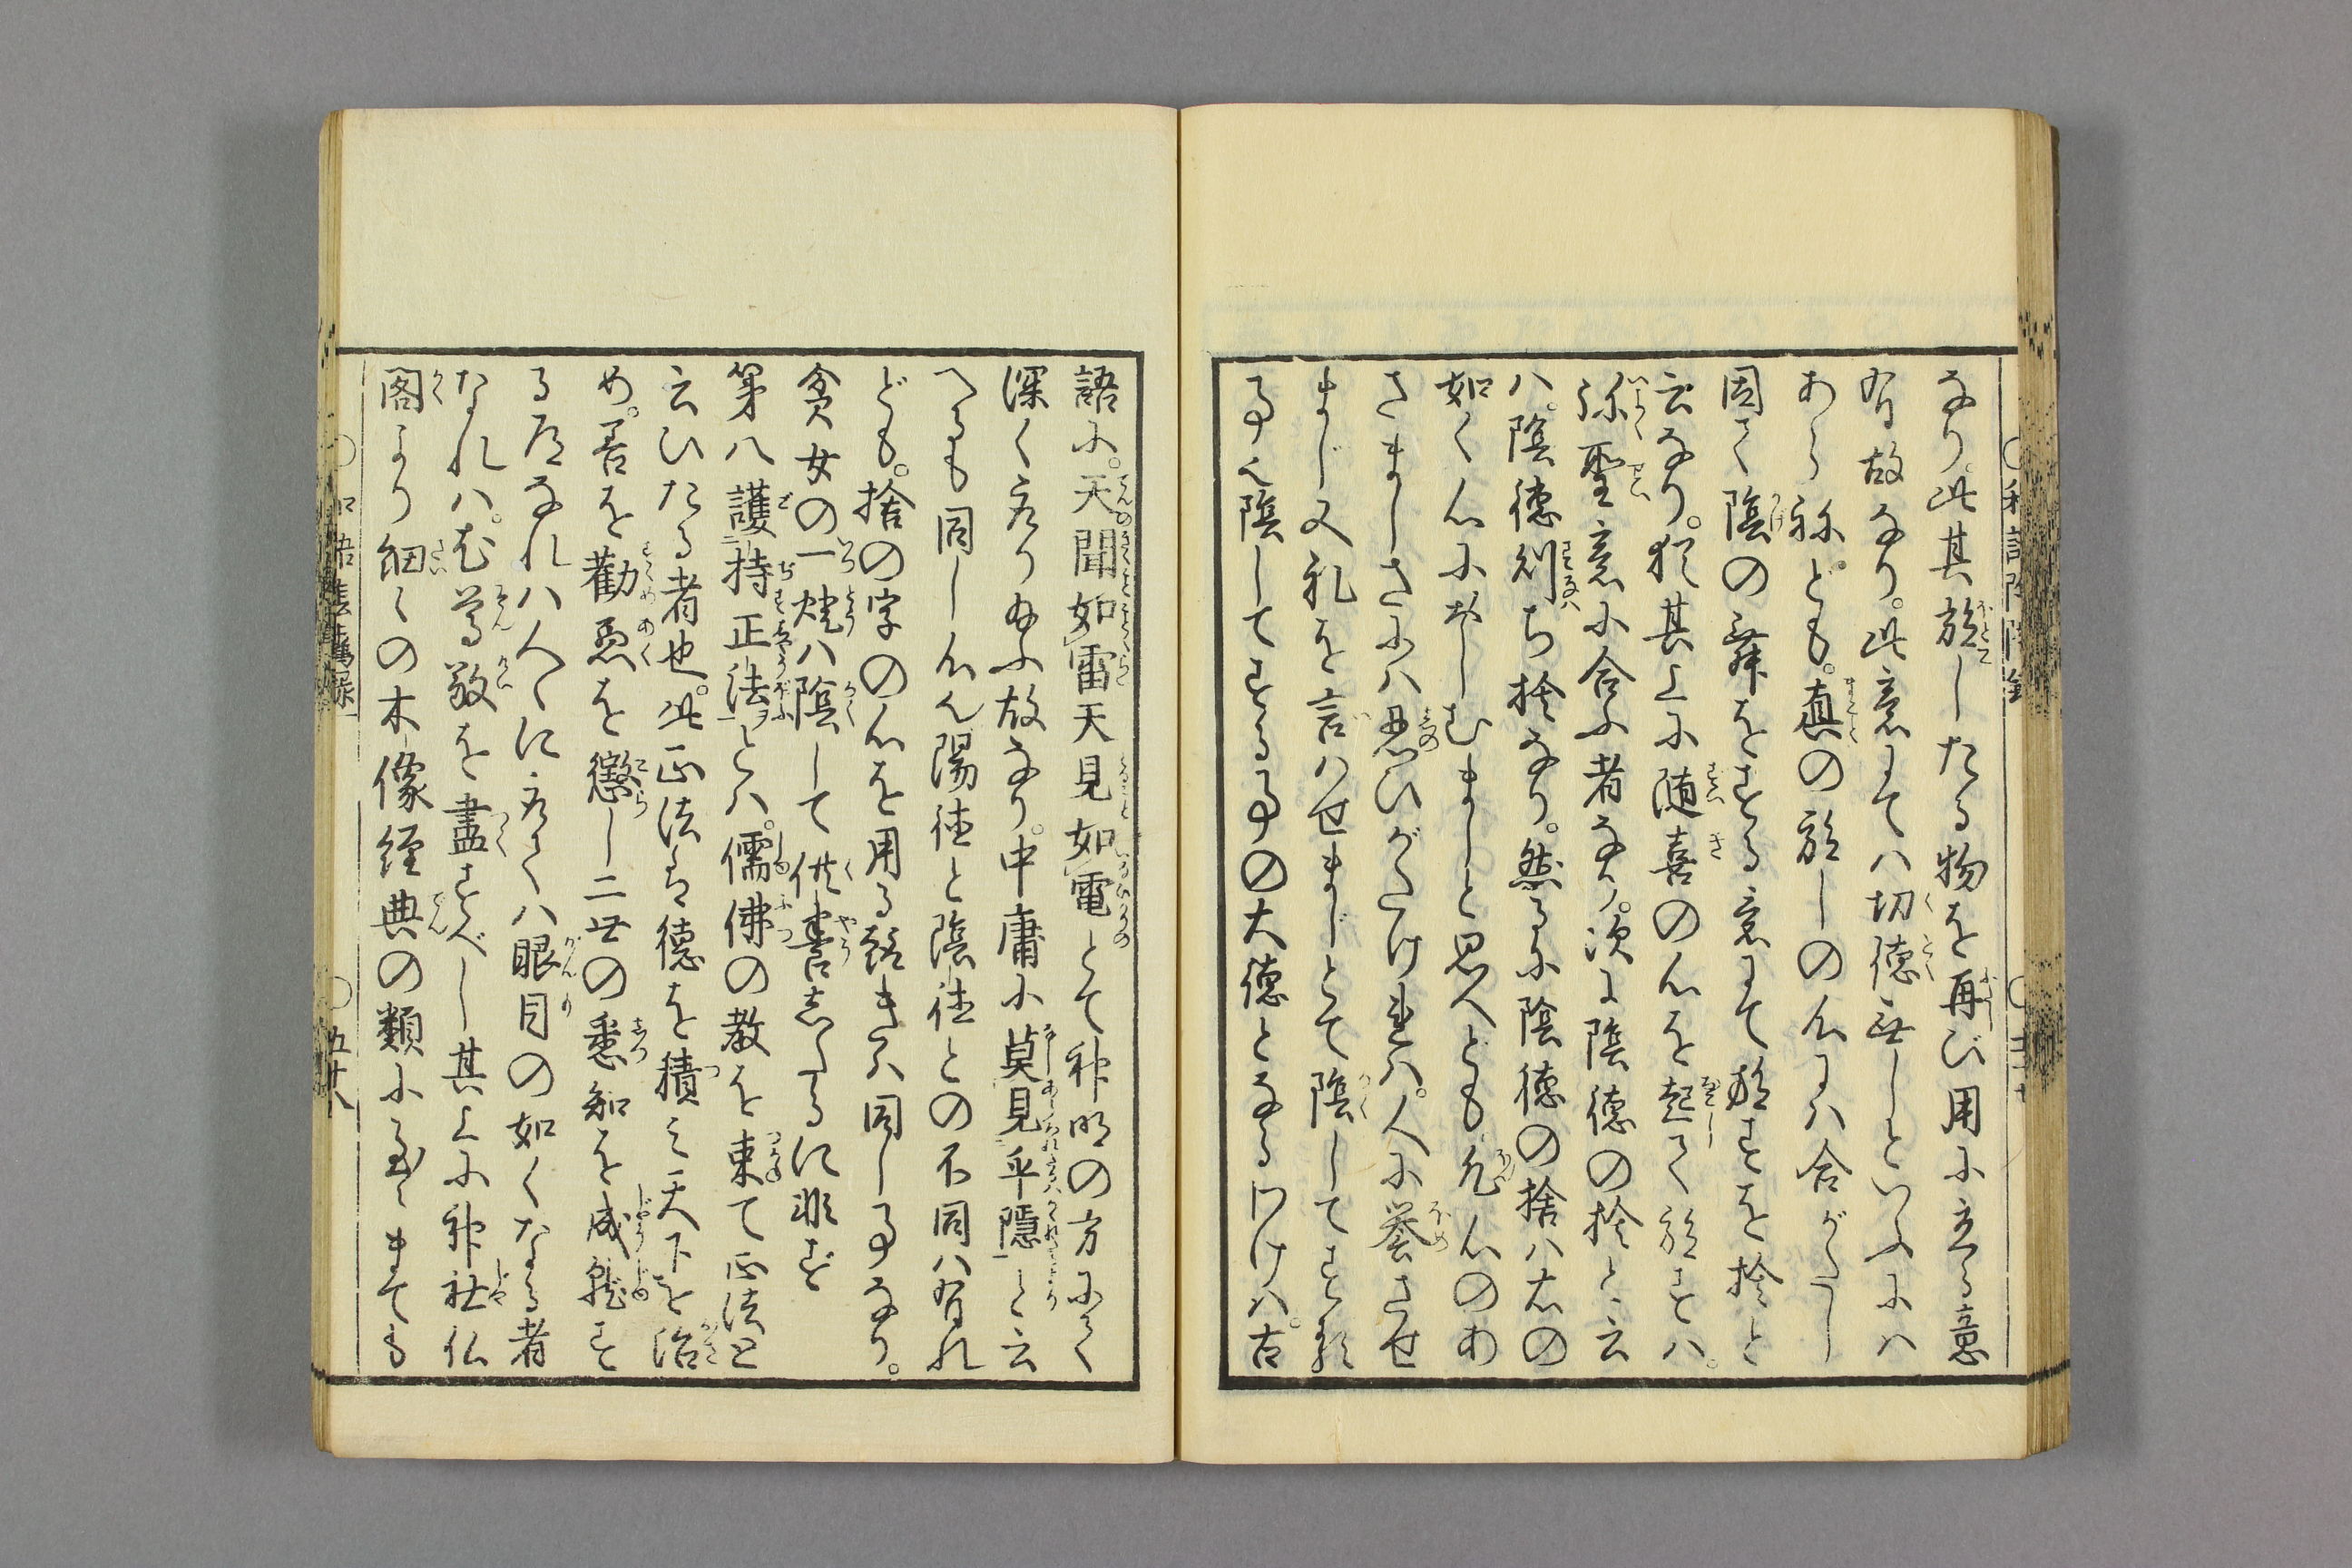 なり。此其放したる物を再び用に立る意
有故なり。此意にてハ切徳無しといふにハ
あらねども。真の放しの心にハ合がたし
因て陰の舞をする意にて放すを捨と
云なり。猶其上に随喜の心を起て放せハ。
弥聖意に合ふ者なり。次に陰徳の捨と云
ハ。陰徳則ち捨なり。然るに陰徳の捨ハ右の
如く心におしむましと思へども凡心のあ
さましさにハ忍ひがたけれハ。人に誉させ
まじ又礼を言ハせまじとて陰してする
事也陰してする事の大徳となるわけハ。古
語に。天聞如雷天見如電とて神明の方にてく
深く受り給ふ故なり。中庸に莫見乎隠と云
へるも同し心也陽徳と陰徳との不同ハ有れ
ども。捨の字の心を用る詮きハ同し事なり。
貪女の一燈ハ陰して供養したるに非ず
第八護持正法とハ。儒佛の教を束て正法と
云ひたる者也。此正法ハ徳を積て天下を治
め。善を勧悪を懲し二世の悉知を成就す
る道なれハ人々に於てハ眼目の如くなる者
なれハ。尤尊敬を盡すべし其上に神社仏
閣より細々の木像経典の類に至るまても